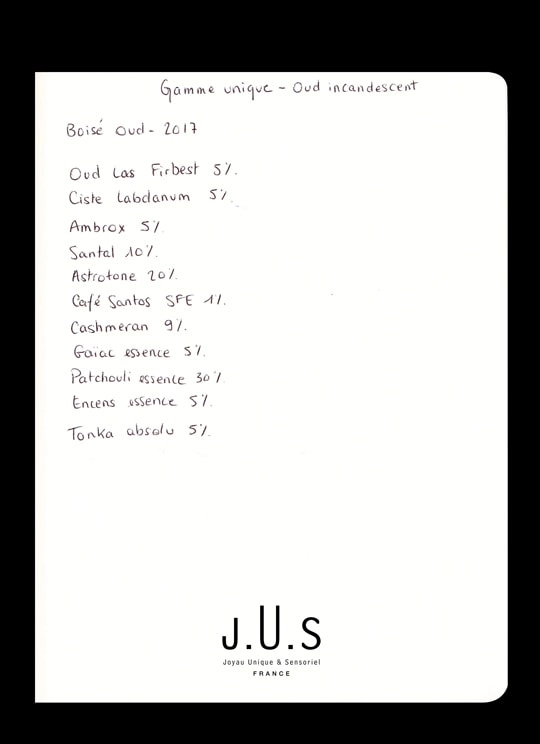 Gamme unique - Oud incandescent
Boisé Oud - 2017
Oud Las Firbest 5%.
Ciste Labdanum 5%.
Ambrox 5%
Santal 10%.
Astrotone 20%.
Café Santos SFE 1%.
Cashmeran 9%.
Gaïac essence 5%.
Patchouli essence 30%.
Encens essence 5%.
Tonka absolu 5%.
J.U.S
Joyau Unique & Sensoriel
FRANCE